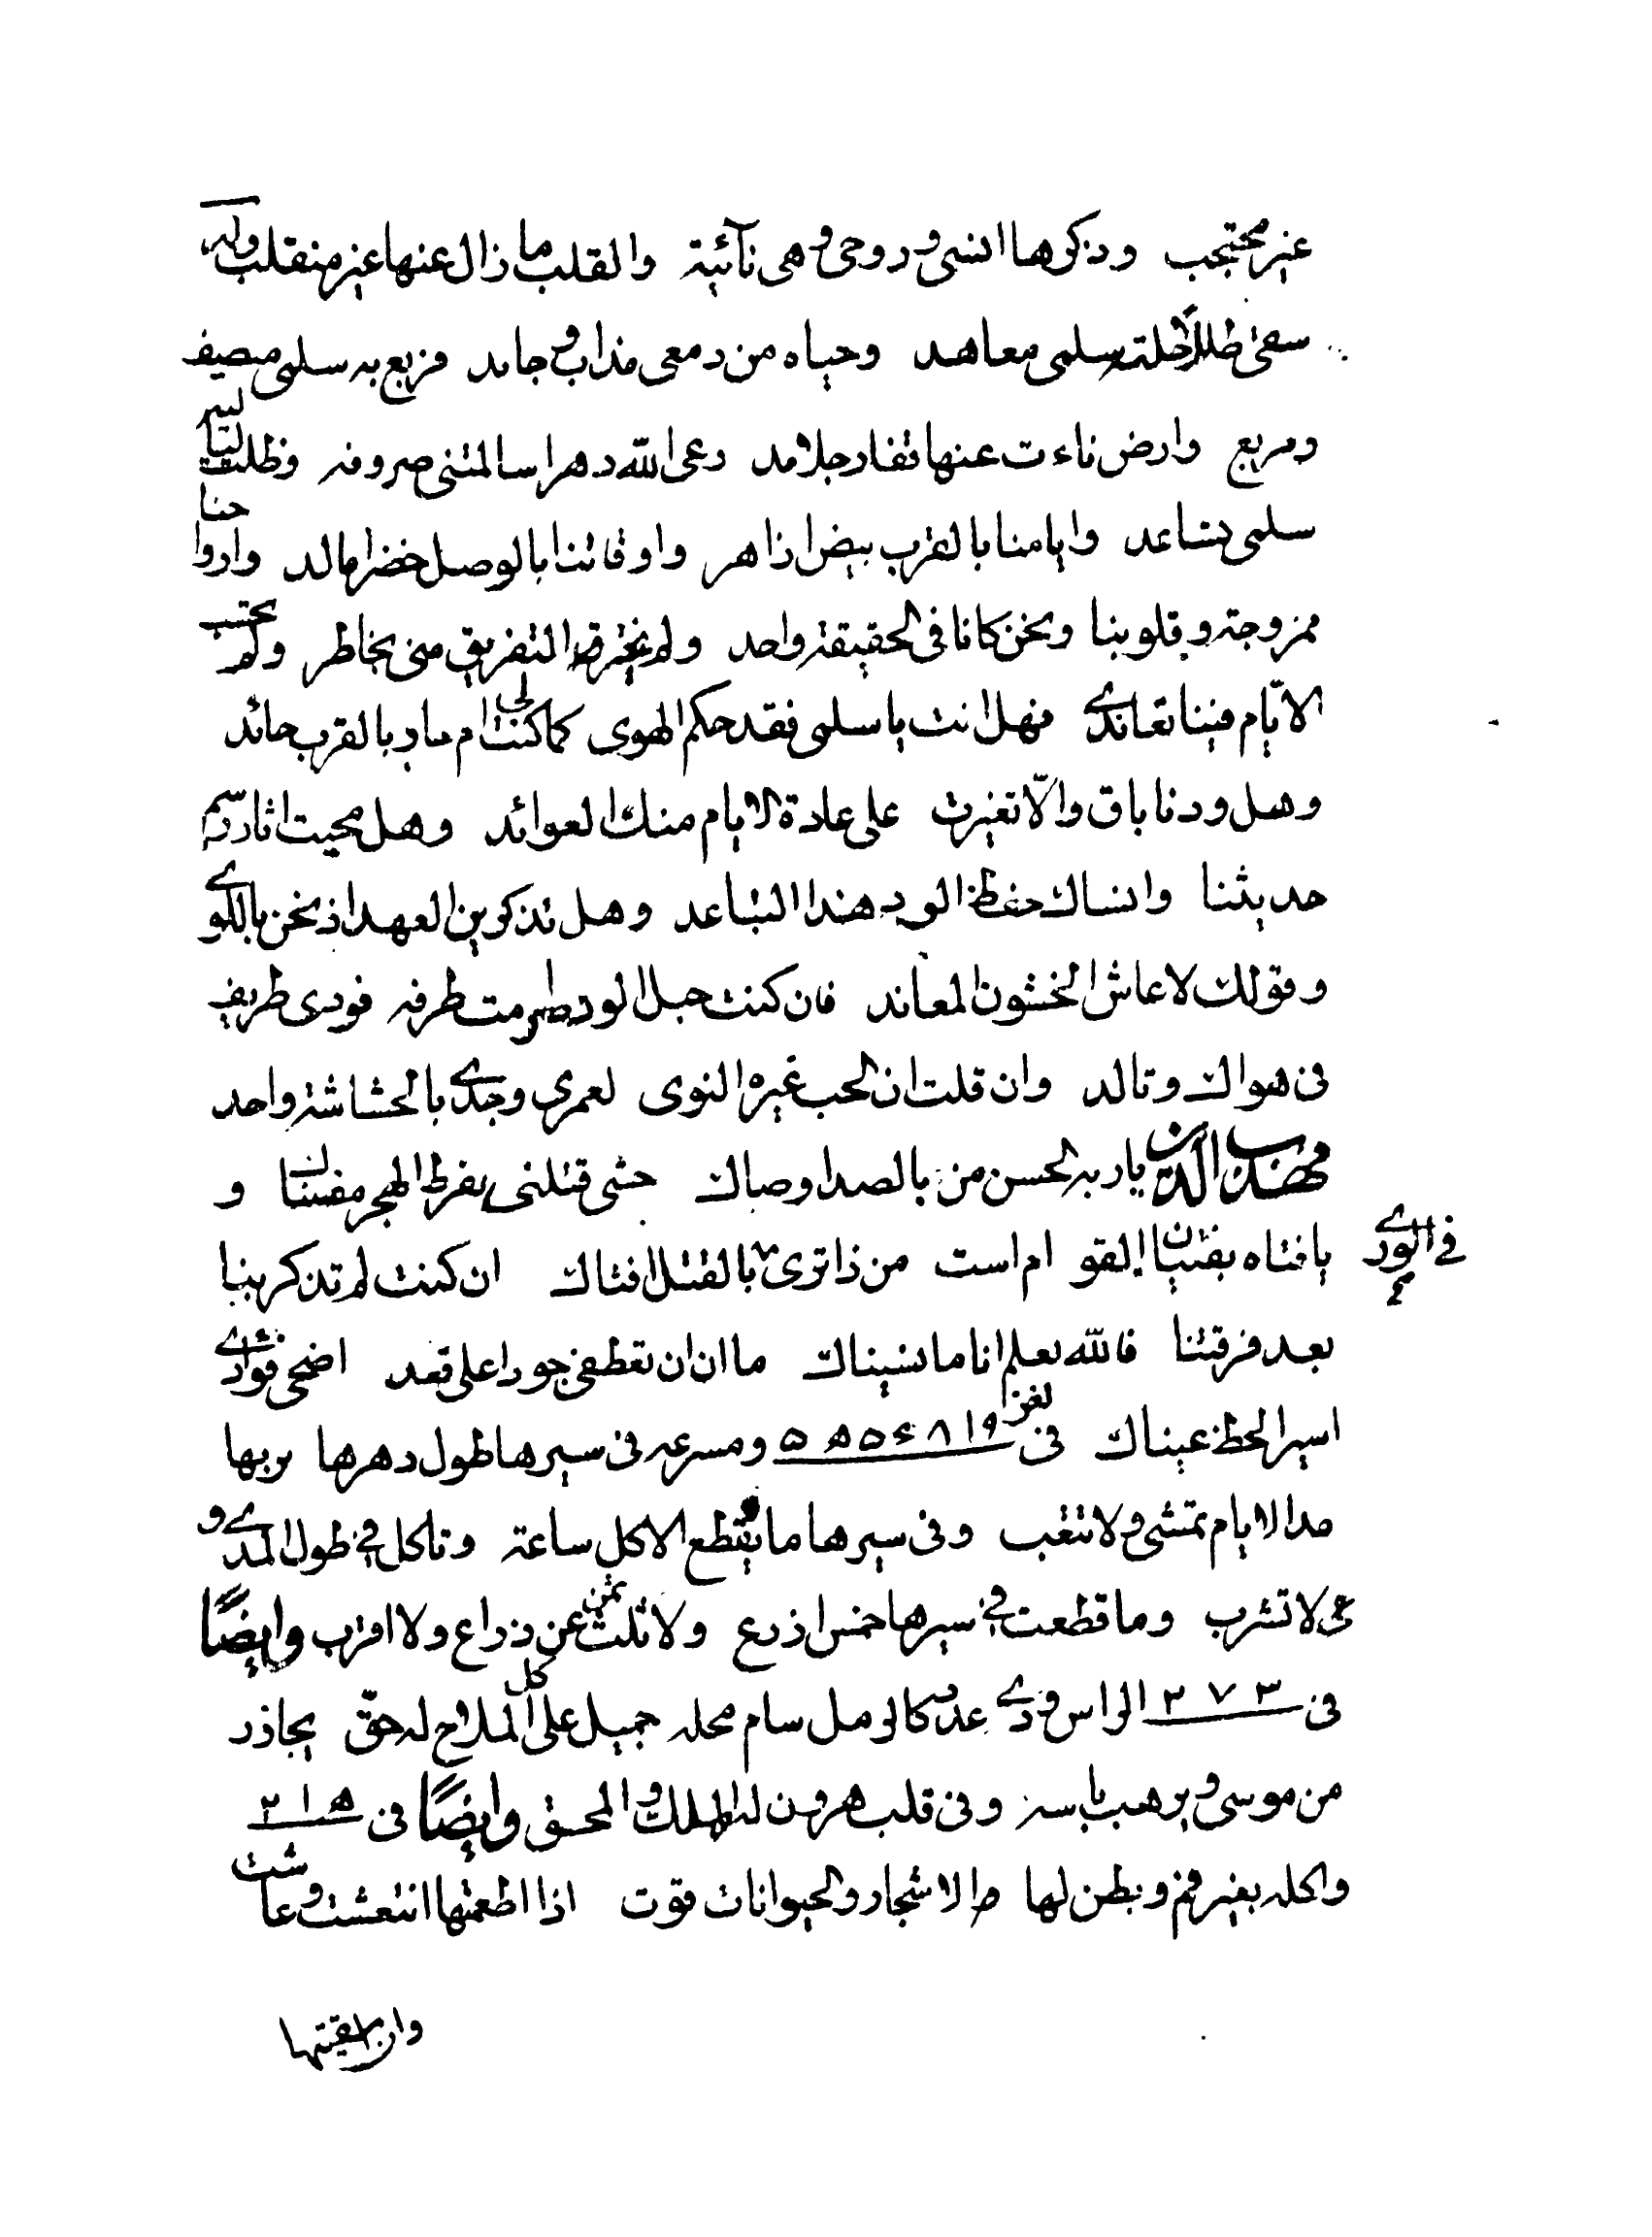 غير محتجب وذكرها انسى وروحى وهى نآئية والقلب ما زال عنها غير منقلب وله
سقى طللا حلته سلمى معاهد وحياه من دمعى مذاب وجامد فربع به سلمى مصيف
ومربع وارض ناءت عنها قفار جلامد رعى الله دهرا سالمتنى صروفه وظلت ليالى
سلمى تساعد وايامنا بالقرب بيض ازاهر واوقاتنا بالوصل خضر امالد وارواحنا
ممزوجة وقلوبنا ونحن كانا فى الحقيقة واحد ولم يخترق التفريق منى بخاطر ولم تحتسب
الايّام فينا تعاندى فهل انت يا سلمى فقد حكم الهوى كما كنت لى ام حاد بالقرب حائد
وهل ودنا باق والّا تغيرت على عادة الايام منك العوائد وهل محيت اثار رسم
حديثنا وانساك حفظ الود هذا التباعد وهل تذكرين العهد اذ نحن باللوى
وقولك لا عاش الخئون المعاند فان كنت حبل الود صرمت طرفه فودى طريف
فى هواك وتالد وان قلت ان الحب غيره النوى لعمرى وجدى بالحشاشة واحد
مهذب الدين يا ربة الحسن من بالصد اوصاك حتى قتلتنى بفرط الهجر مضناك و
يا فتاه بفتيان القو ام است من ذا ترى بالقتل افتاك ان كنت لم تذكرينا
فى الورى
بعد فرقتنا فالله يعلم انا ما نسيناك ما ان ان تعطفى جودا على قعد اضحى فؤادى
اسير الحظ عيناك فى لغز ومسرعه فى سيرها طول دهرها يريها
مدا الايام تمشى ولا تتعب وفى سيرها ما تقطع الاكل ساعة وتاكل فى طول المدى و
هى لا تشرب وما قطعت فى سيرها خمس اذرع ولا ثلث ثمن عن ذراع ولا اقرب وايضًا
فى ٣ ٧ ٢ الراس وذى عدد كالرمل سام محله جميل على كل الملاح له حقّ يحاذر
من موسى ويرهب باسه وفى قلب هرون له الملك والمحق وايضًا فى
واكله بغير فم وبطن لها الاشجار والحيوانات قوت اذا اطعمتها انتعشت وعاشت
وان سقيتها